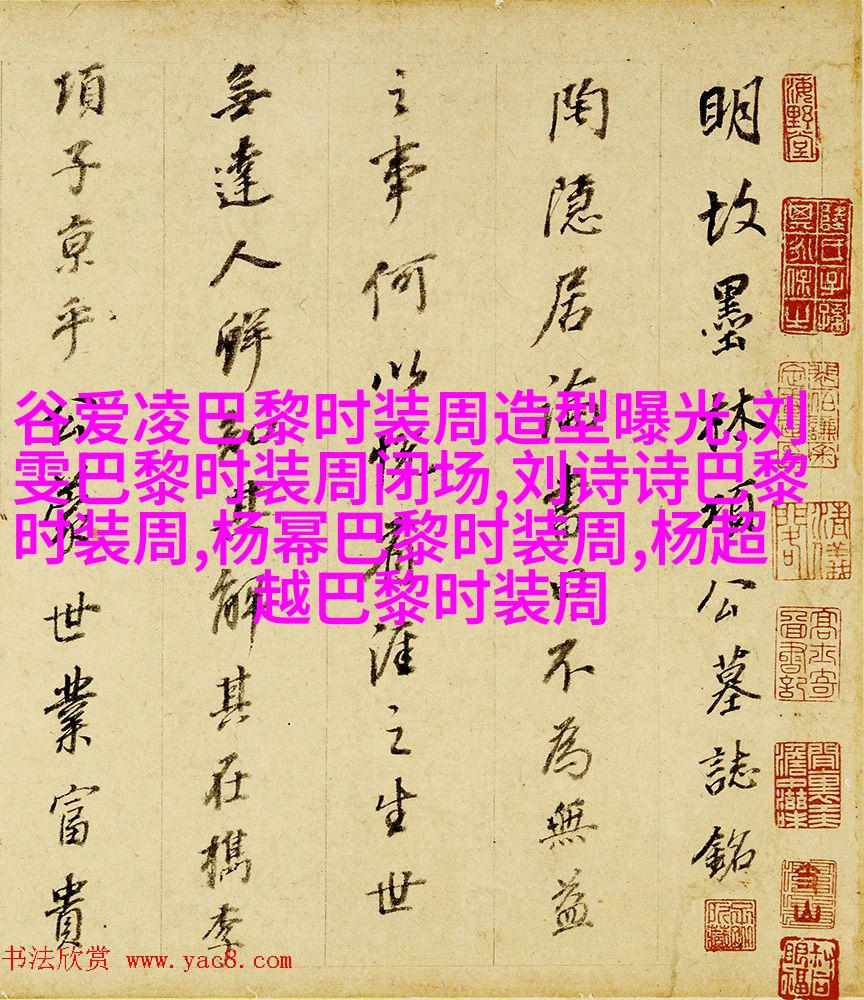 明故墨林項公墓誌銘
陶隱居誨書曰不為無益
之事何以悅有涯之生世
無達人鮮知其解其在檇李
項子京乎公蒙世業富貴
谷爱凌巴黎时装周造型曝光,刘
雯巴黎时装周闭场,刘诗诗巴黎
时装周,杨幂巴黎时装周,杨超
越巴黎时装周
书法欣赏 www.yac8.com